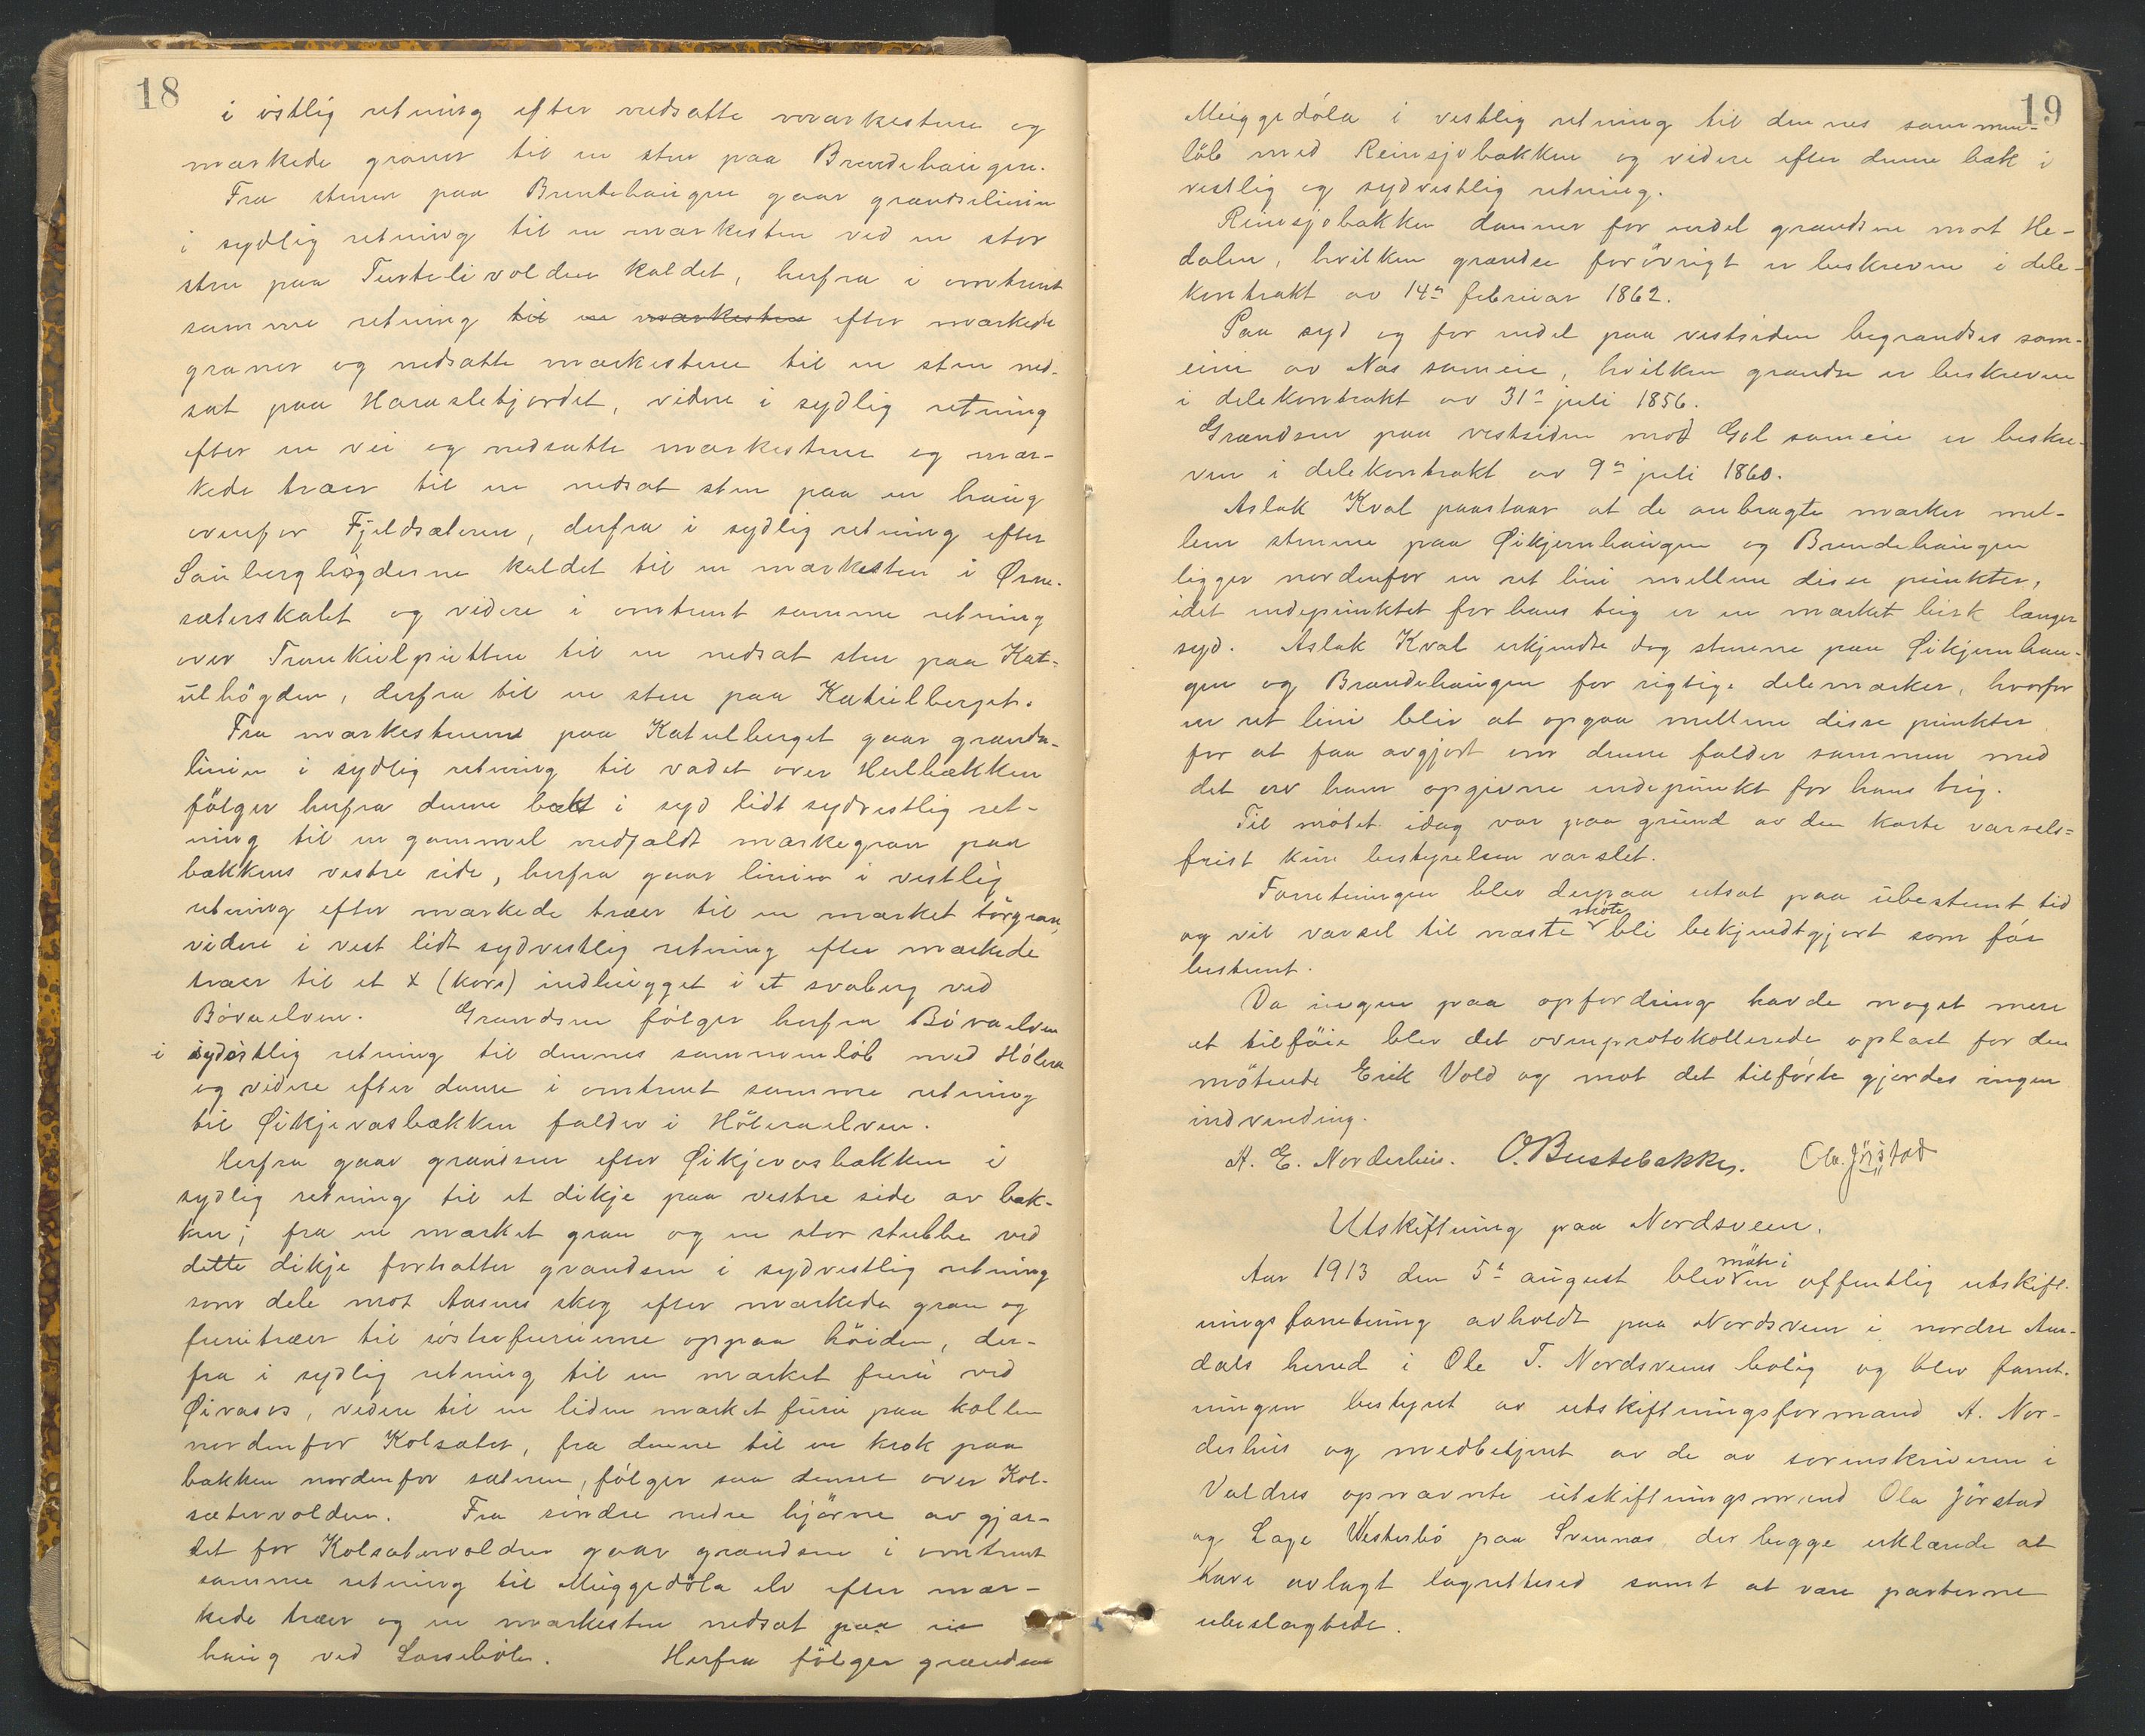 18
i östlig retning efter nedsatte merkestene og
merkede graner til en sten paa Brendehaugen.
Fra stenen paa Brentehaugen gaar grændselinien
i sydlig retning til en merkesten ved en stor
sten paa Turtelivolden kaldet, herfra i omtrent
samme retning til en merkesten efter merkede
graner og nedsatte merkestene til en sten ned-
sat paa Haraslebjordet, videre i sydlig retning
efter en vei og nedsatte merkestene og mær-
kede træer til en nedsat sten paa en haug
ovenfor Fjeldsæteren, derfra i sydlig retning efter
Sauberghøgderne kaldet til en mærkesten i Øsne-
sæterskalet og videre i omtrent samme retning
over Trunkulputten til en nedsat sten paa Kat-
ulhögden, derfra til en sten paa Katulberget.
Fra merkestenene paa Katulberget gaar grændse-
linien i sydlig retning til vadet over Helbækken
fölger herfra denne bæk i syd lidt sydvestlig ret-
ning til en gammel nedfaldt mærkegran paa
bækkens vestre side, herfra gaar linien i vestlig
retning efter merkede træer til en merket törgran,
videre i vest lidt sydvestlig retning efter mærkede
træer til et x (kors) indhugget i et svaberg ved
Bövaelven. Grændsen fölger herfra Bövaelven
i sydöstlig retning til dennes sammenlöb med Hölera
og videre efter denne i omtrent samme retning
til Øikjevasbækken falder i Höleraelven.
Herfra gaar grændsen efter Øikjevasbækken i
sydlig retning til et dikje paa vestre side av bæk-
ken; fra en merket gran og en stor stubbe ved
dette dikje fortsætter grændsen i sydvestlig retning
som dele mot Aasnes skog efter merkede gran og
furutræer til östrefuruerne oppaa höiden, der-
fra i sydlig retning til en merket furu ved
Øivasos, videre til en liden merket furu paa kollen
nordenfor Kolsæter, fra denne til en krok paa
bækken nordenfor sæteren, fölger saa denne over Kol-
sætervolden. Fra söndre nedre hjörne av gjær-
det for Kolsætervolden gaar grændsen i omtrent
samme retning til Muggedöla elv efter mær-
kede træer og en merkesten nedsat paa en
haug ved Larsehölen. Herfra fölger grændsen
19
Muggedöla i vestlig retning til dennes sammen-
löb med Reinsjobækken og videre efter denne bæk i
vestlig og sydvestlig retning.
Reinsjobækken danner for endel grændsen mot He-
dalen, hvilken grændse forövrigt er beskreven i dele-
kontrakt av 14de februar 1862.
Paa syd og for endel paa vestsiden begrændses sam-
eiet av Nes sameie, hvilken grændse er beskreven
i delekontrakt av 31te juli 1856.
Grændsen paa vestsiden mod Gol sameie er beskre-
ven i delekontrakt av 9de juli 1860.
Aslak Kval paastaar at de anbragte merker mel-
lem stenene paa Øikjernhaugen og Brendehaugen
ligger nordenfor en ret linie mellem disse punkter,
idet endepunktet for hans teig er en merket birk længer
syd. Aslak Kval erkjendte dog stenene paa Øikjernhau-
gen og Brændehaugen for rigtige delemerker, hvorfor
en ret linie blir at opgaa mellem disse punkter
for at faa avgjort om denne falder sammen med
det av ham opgivne endepunkt for hans teig.
Til mötet idag var paa grund av den korte varsels-
frist kun bestyrelsen varslet.
Forretningen blev derpaa utsat paa ubestemt tid
og vil varsel til næste möte bli bekjendtgjort som för
bestemt.
Da ingen paa opfordring havde noget mere
at tilföie blev det ovenprotokollerede oplæst for den
mötende Erik Vold og mot det tilförte gjordes ingen
indvending.
A. E. Norderhus. O. Bustebakke. Ola Jörstad
Utskiftning paa Nordsveen.
Aar 1913 den 5te august blev möte i en offentlig utskift-
ningsforretning avholdt paa Nordsveen i nordre Aur-
dals herred i Ole T. Nordsveens bolig og blev forret-
ningen bestyret av utskiftningsformand A. Nor-
derhus og medbetjent av de av sorenskriveren i
Valdres opnævnte utskiftningsmænd Ola Jörstad
og Lage Westerbö paa Svennes, der begge erklærede at
have avlagt lagrettesed samt at være parterne
ubeslægtede.